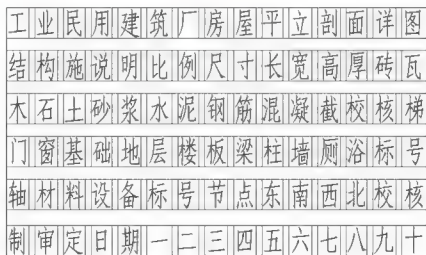 工业民用建筑厂房屋平立剖面详图
结构施说明比例尺寸长宽高厚砖瓦
木石土砂浆水泥钢筋混凝截校核梯
门窗基础地层楼板梁柱墙厕浴标号
轴材料设备标号节点东南西北校核
制审定日期一二三四五六七八九十